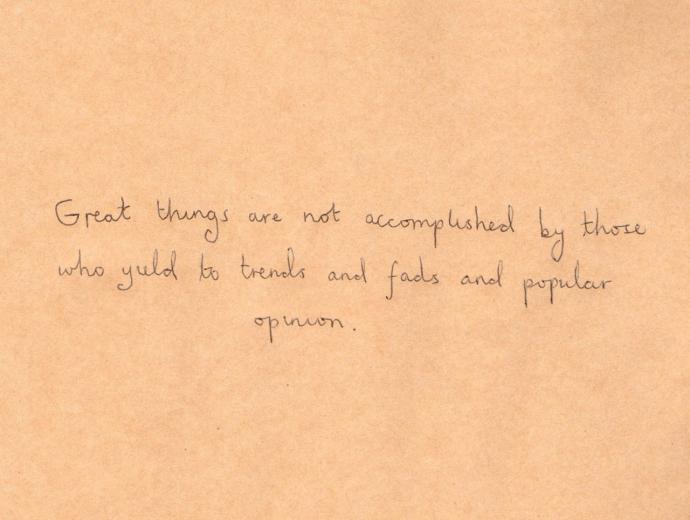 Great things are not accomplished by those
who yield to trends and fads and popular
opinion.